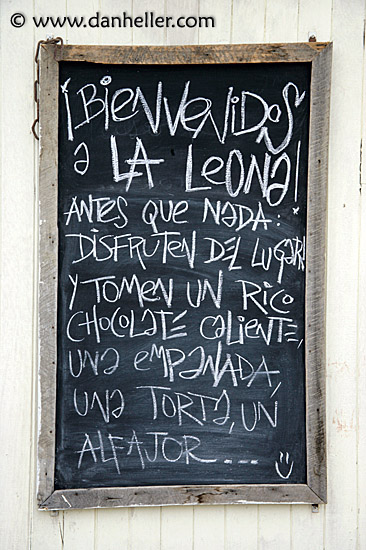 © www.danheller.com
¡BIENVENIDOS
a LA LEONA!
ANTES QUE NADA:
DISFRUTEN DEL LUGAR!
Y TOMEN UN RICO
CHOCOLATE CALIENTE,
UNA EMPANADA,
UNA TORTA, UN
ALFAJOR....